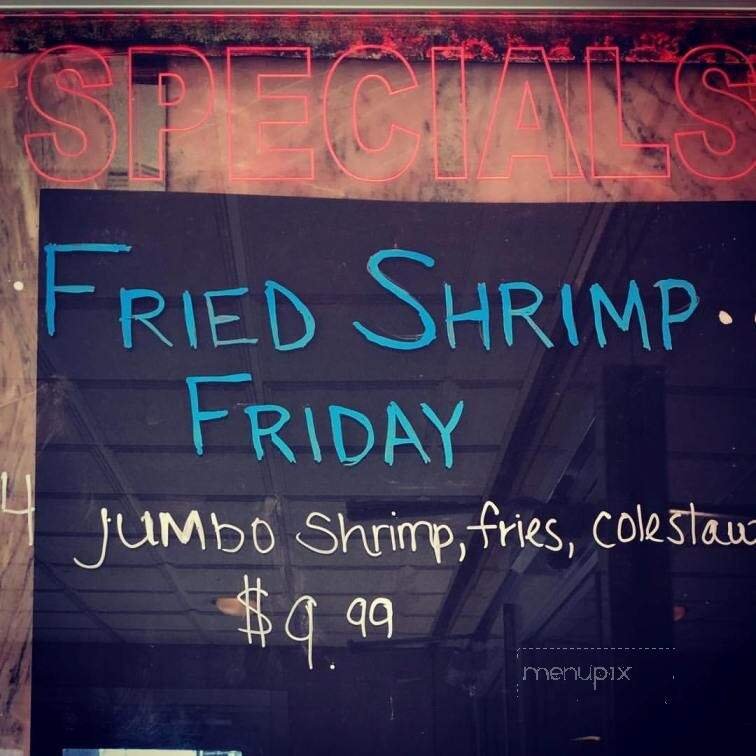 SPECIALS
FRIED SHRIMP..
FRIDAY
4 JUMBO Shrimp, fries, coleslaw
$9.99
menupix